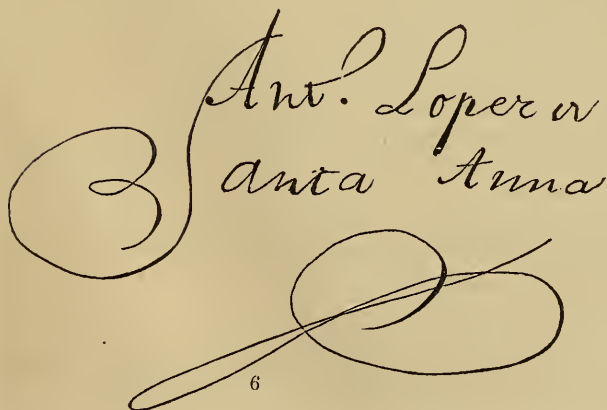 Ant.º Lopez de
Santa Anna
6